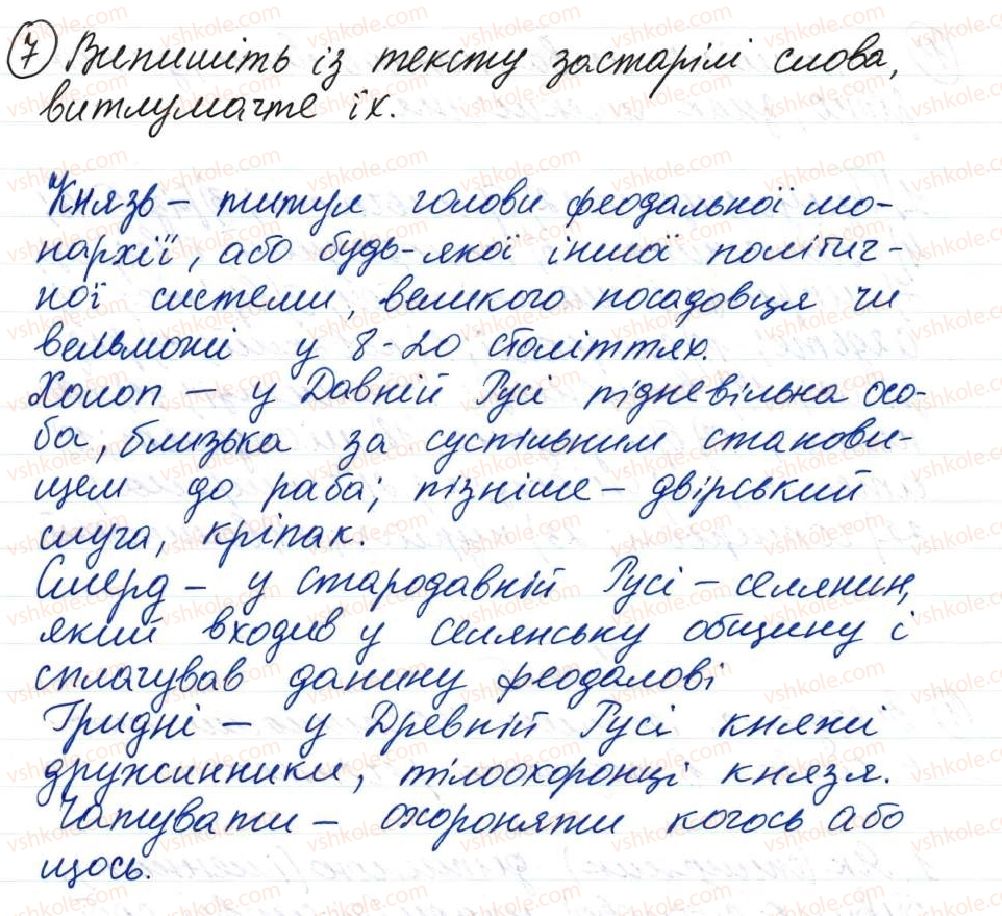 7 Випишіть із тексту застарілі слова,
витлумачте їх.
Князь – титул голови феодальної мо-
нархії, або будь-якої іншої політич-
ної системи, великого посадовця чи
вельможі у 8-20 століттях.
Холоп – у Давній Русі підневільна осо-
ба, близька за суспільним станови-
щем до раба; пізніше – двірський
слуга, кріпак.
Смерд – у стародавній Русі – селянин,
який входив у селянську общину і
сплачував данину феодалові
Гридні – у Древній Русі княжі
дружинники, тілоохоронці князя.
Чатувати – охороняти когось або
щось.
vshkole.com